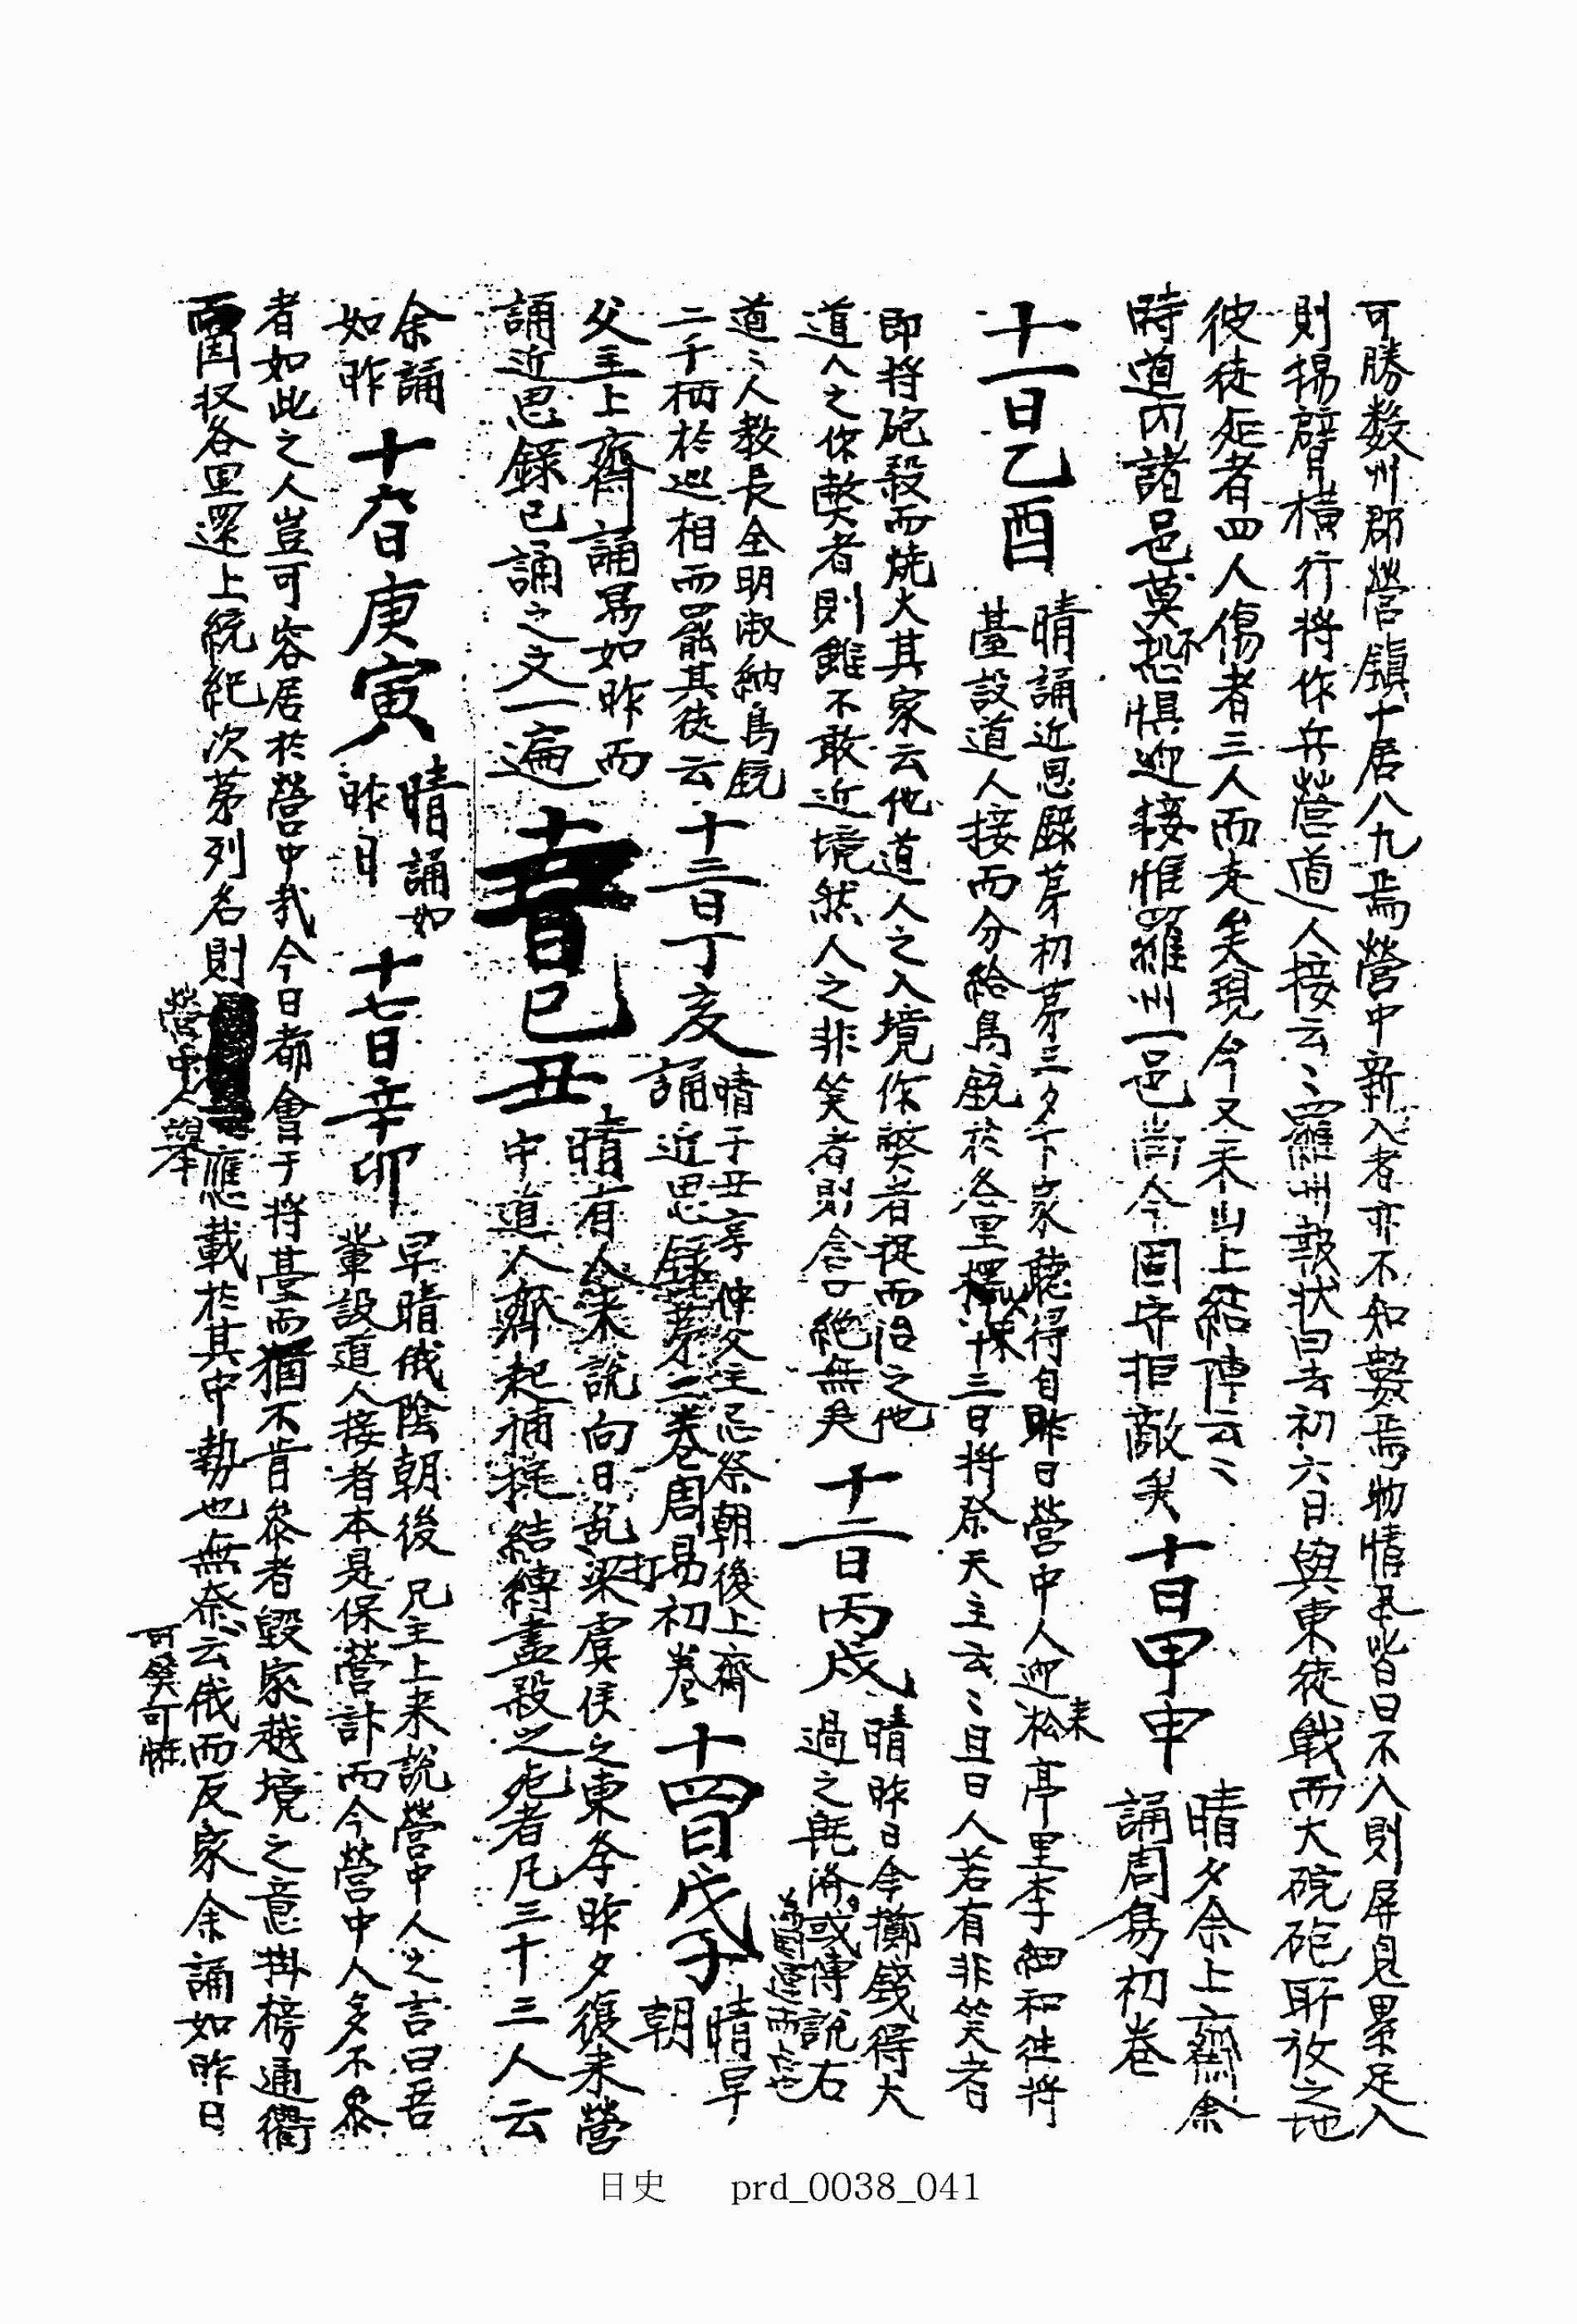 可勝數州郡營鎭十居八九焉營中新入者亦不知數焉物情皆曰不入則屏息累足入
則揚臂橫行將作兵營道人接云〻羅州報狀曰去初六日與東徒戰而大碗砲所放之地
彼徒死者四人傷者三人而走矣現今又來山上結陣云〻
時道內諸邑莫不恐懼迎接惟羅州一邑尙今固守拒敵矣
十日甲申
晴夕余上齋余
誦周易初卷
十一日乙酉
晴誦近思錄第初第三夕下家聽得自昨日營中人迎來松亭里李細和往將
臺設道人接而分給鳥銃於各里十三日將祭天主云〻且曰人若有非笑者
卽將砲殺而燒火其家云他道人之入境作弊者捉而治之他
道人之作弊者則雖不敢近境然人之非笑者則含口絶無矣
十二日丙戌
晴昨日今擲錢得大
過之旣濟或傳說右
道〻人敎長全明淑納鳥銃
二千柄於巡相而罷其徒云
十三日丁亥
晴子丑享仲父主忌祭朝後上齋
誦近思錄第二卷周易初卷
十四日戊子
晴早
朝
父主上齋誦易如昨而
誦近思錄已誦之文一遍
十五日己丑
晴有人來說向日亂打梁虞侯之東李昨夕復來營
中道人齊起捕捉結縛盡殺之死者凡三十三人云
余誦
如昨
十六日庚寅
晴誦如
昨日
十七日辛卯
早晴俄陰朝後兄主上來說營中人之言曰吾
輩設道人接者本是保營計而今營中人多不參
者如此之人豈可容居於營中哉今日都會于將臺而猶不肯參者毁家越境之意掛榜通衢
而因收各里還上統紀次第列名則營中人擧應載於其中勢也無奈云俄而反家余誦如昨日
可笑可恠